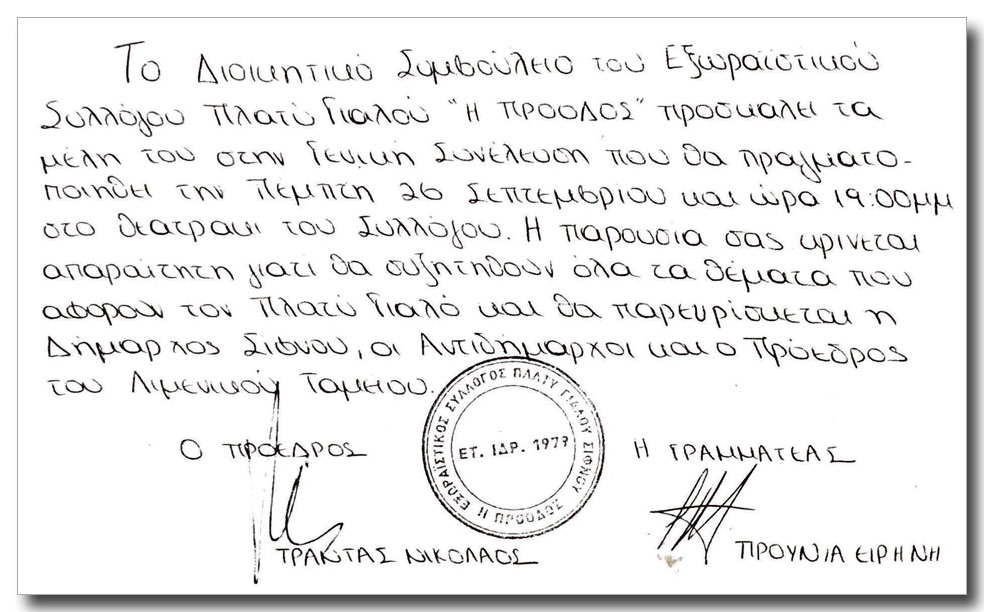 Το Διοικητικό Συμβούλειο του Εξωραϊστικού
Συλλόγου Πλατύ Γιαλού "Η ΠΡΟΟΔΟΣ" προσκαλει τα
μέλη του στην Γενική Συνέλευση που θα πραγματο-
ποιηθεί την Πέμπτη 26 Σεπτεμβρίου και ώρα 19:00μμ
στο θεατρακι του Συλλόγου. Η παρουσία σας κρινεται
απαραίτητη γιατί θα συζητηθούν όλα τα θέματα που
αφορουν τον Πλατύ Γιαλό και θα παρευρίσκεται η
Δήμαρχος Σιφνου, οι Αντιδήμαρχοι και ο Πρόεδρος
του Λιμενικού Ταμειου.
Ο ΠΡΟΕΔΡΟΣ
Η ΓΡΑΜΜΑΤΕΑΣ
ΕΞΩΡΑΪΣΤΙΚΟΣ ΣΥΛΛΟΓΟΣ ΠΛΑΤΥ ΓΙΑΛΟΥ ΣΙΦΝΟΥ
ΕΤ. ΙΔΡ. 1977
Η ΠΡΟΟΔΟΣ
ΤΡΑΝΤΑΣ ΝΙΚΟΛΑΟΣ
ΠΡΟΥΝΙΑ ΕΙΡΗΝΗ